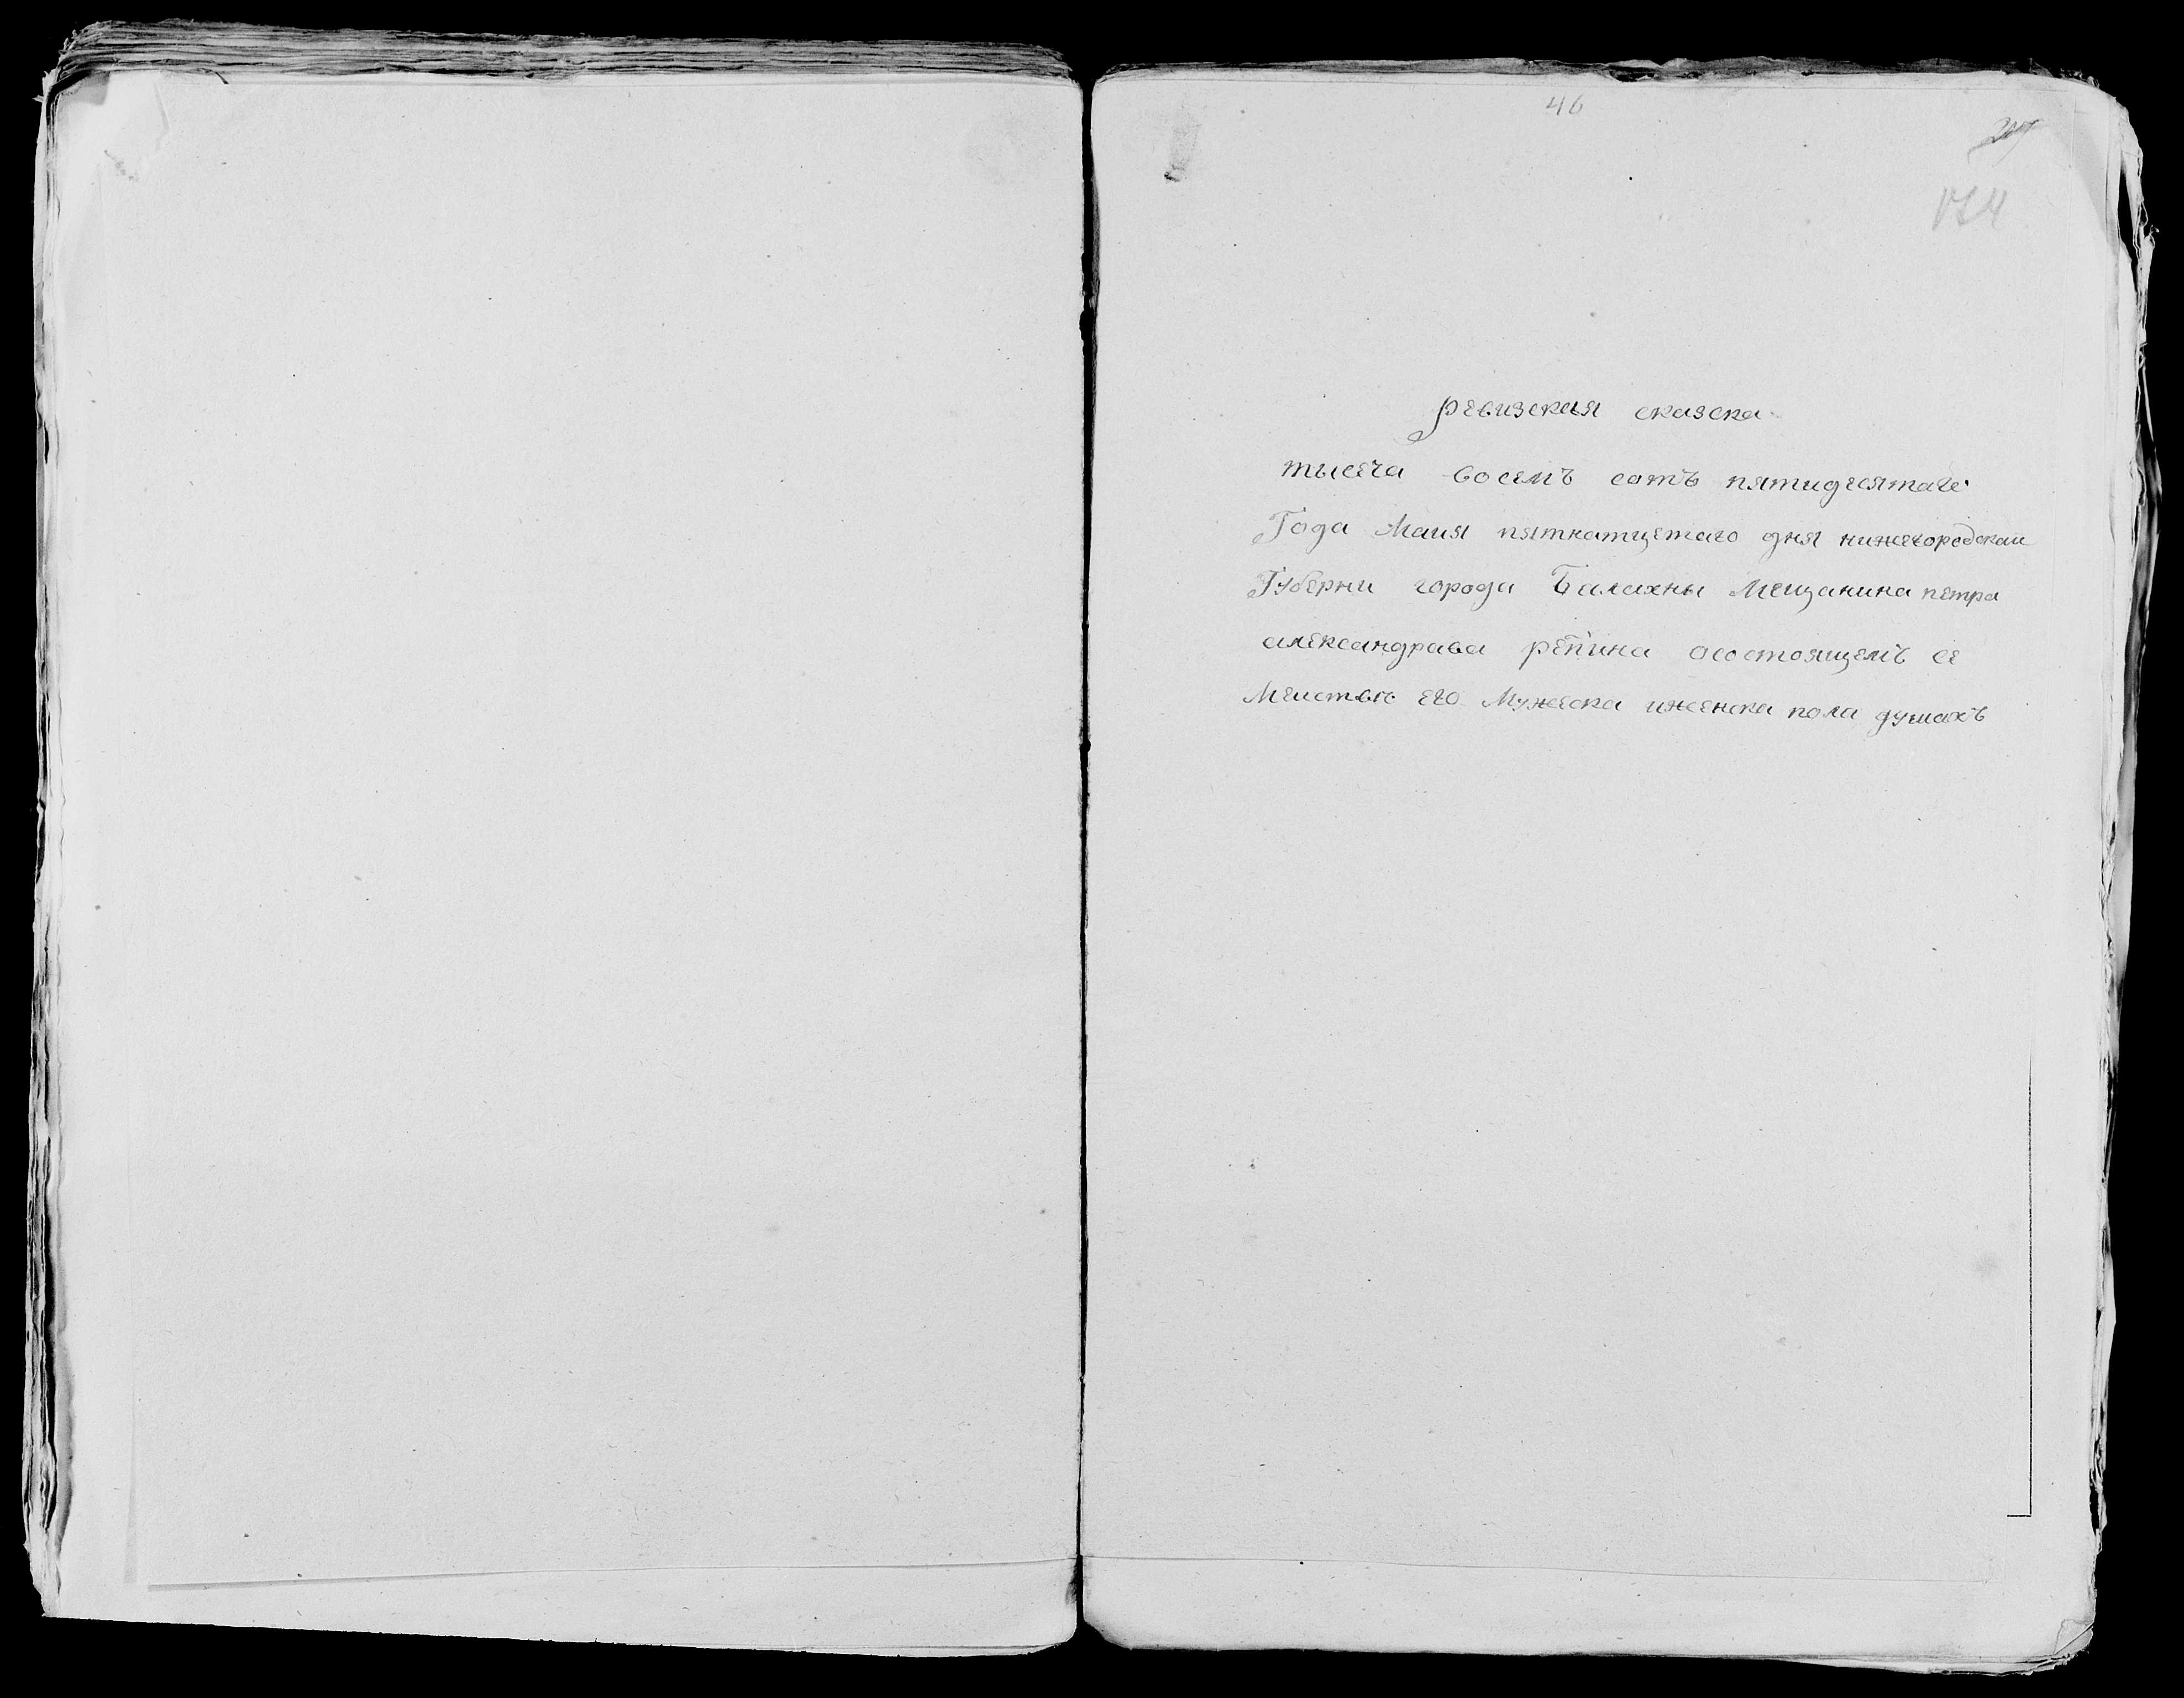 46
ревизская сказска
тысеча восемъ сотъ пятидесятаго
Года Маия пятнатцетаго дня нижегородскаи
Губерни города Балахны Мещанина петра
александрава репина осостоящемъ се
Меистве его Мужеска иженска пола душахъ